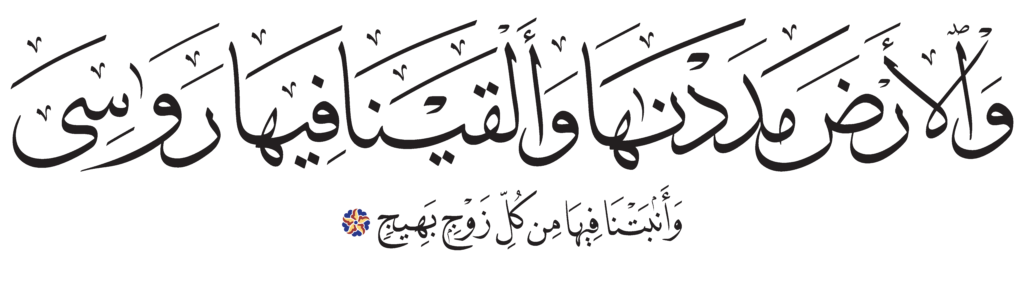 وَٱلْأَرْضَ مَدَدْنَـٰهَا وَأَلْقَيْنَا فِيهَا رَوَٰسِىَ
وَأَنۢبَتْنَا فِيهَا مِن كُلِّ زَوْجٍۭ بَهِيجٍ